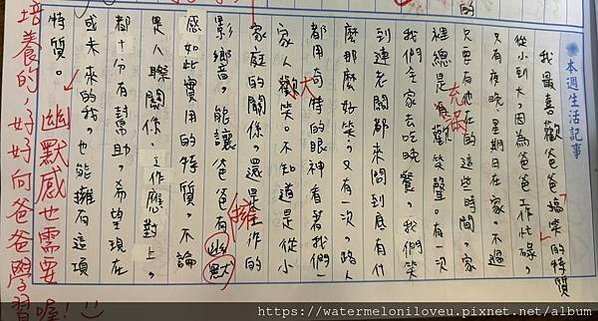 的
本週生活記事
我最喜歡爸爸搞笑的特質
從小到大,因為爸爸工作忙碌,
只有夜晚、星期日在家。不過
只要有他在的這些時間,家
裡總是充滿歡笑聲。有一次
我們全家去吃晚餐。我們笑
到連老闆都來問到底有什
麼那麼好笑。又有一次,路人
都用奇特的眼神看著我們一
家人歡笑。不知道是從小
大
家庭的關係,還是工作的
影響,能讓爸爸有幽默
擁
感如此實用的特質。不論
是人際關係、工作應對上,
都十分有幫助。希望現在
或未來的我,也能擁有這項
特質。
幽默感也需要
培養的,好好向爸爸學習喔!:)
https://watermeloniloveu.pixnet.net/album